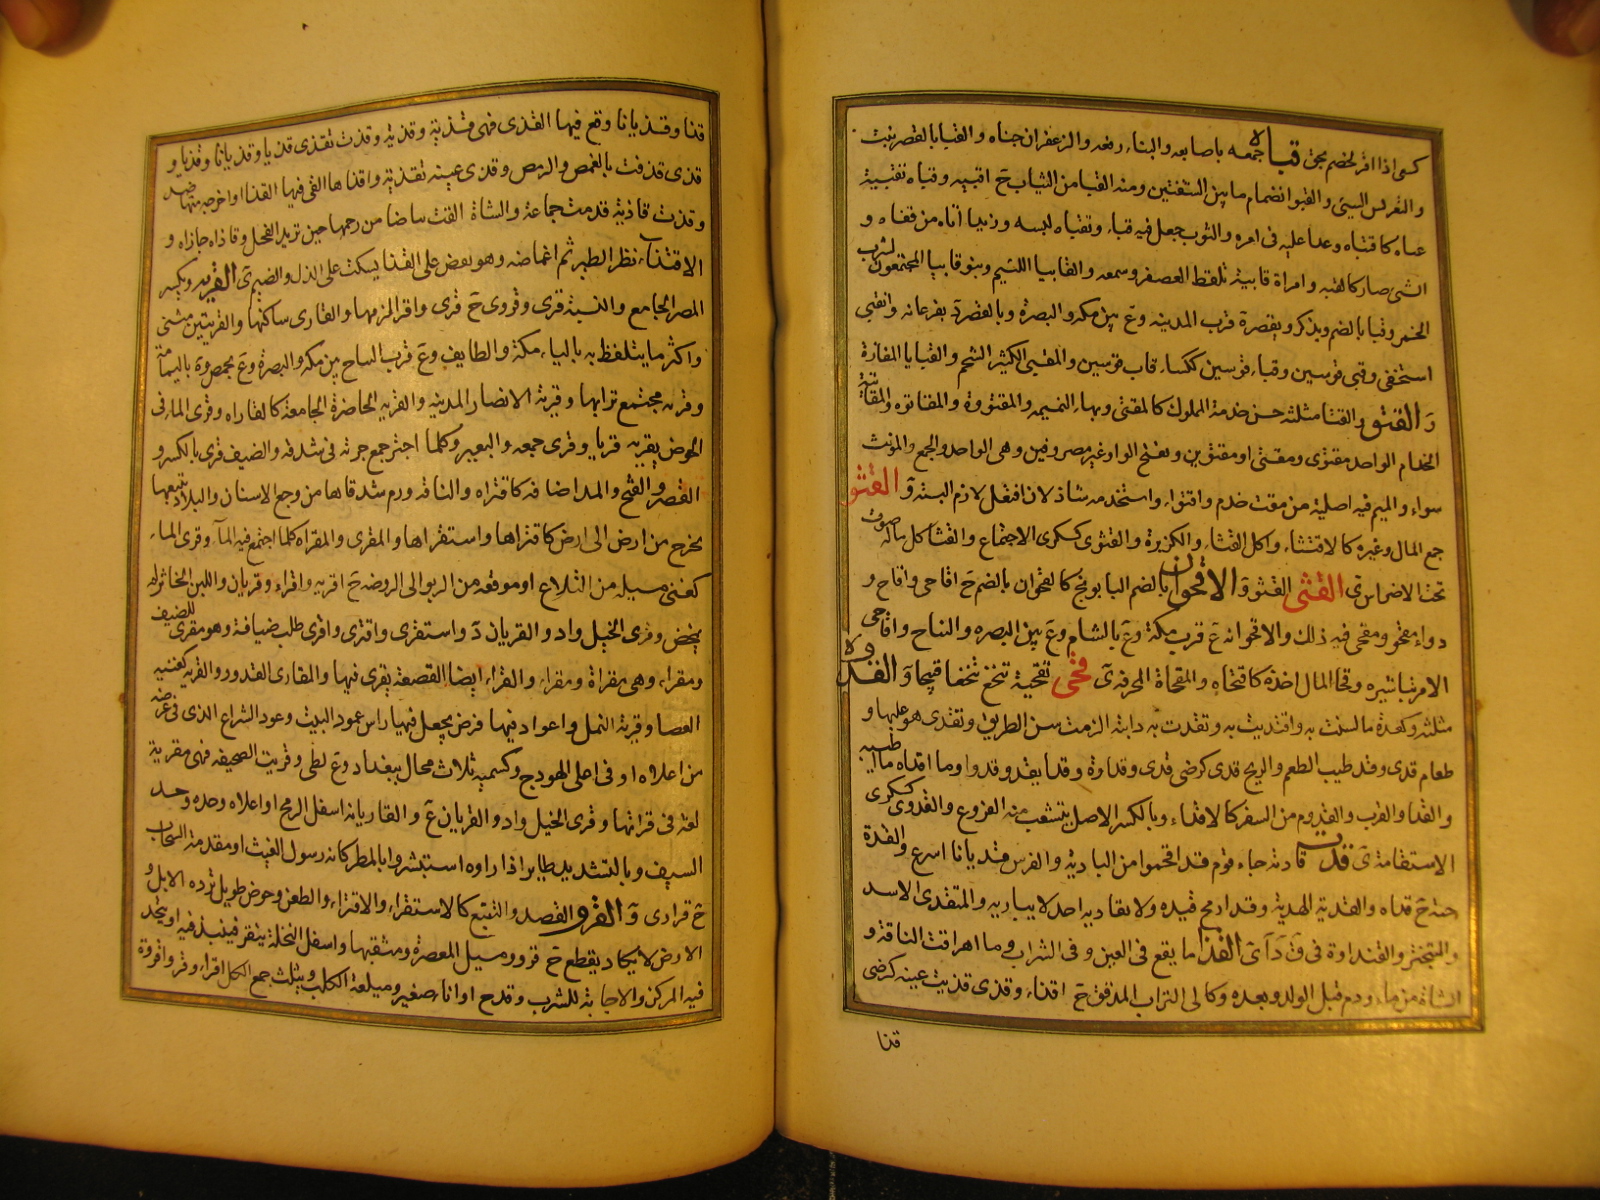 كسعى اذا اقر لخصم بحق قباه جمعه باصابعه والبناء رفعه والزعفران جناه والقبا بالقصر نبت
والتقويس السيئ والقبو انضمام ما بين الشفتين ومنه القبا من الثياب ج اقبيه وقباه تقبية
عباه كاقتباه وعدا عليه فى امره والثوب جعل منه قباء وتقباه لبسه وزيدا اتاه من قفاه و
الشى صار كالقبه وامراة قابية تلقط العصفر وسمعه والقابيا اللئيم وبنو قابيا المجتمعون لشرب
الخمر وقبا بالضم ويذكر ويقصر ة قرب المدينه وع بين مكه والبصرة وبالقصر د بفرعانه وانقبى
استخفى وقبى قوسين وقباء قوسين ككساء قاب قوسين والمقبى الكثير الشحم والقبايا المفازة
و القتو والقتا مثلثه حسن خدمة الملوك كالمقتى وبهاء النميمه والمقتووة والمقاتوه والمقاتية
الخدام الواحد مقتوى ومقتى او مقتوين وتفتح الواو غير مصروفين وهى الواحد والجمع والمونث
سواء والميم فيه اصلية من مقت خدم واقتواه واستخدمه شاذ لان افتعل لازم البتة و القثو
جمع المال وغيره كالاقتثاء واكل القثاء والكزبرة والقثوى كسكرى الاجتماع والقثا كل ماله صوت
تحت الاضراس ى القثى القثو و الاقحوان بالضم البابونج كالقحوان بالضم ج اقاحى واقاح و
دواء مقحو ومقحى فيه ذلك والاقحوانه ع قرب مكة وع بالشام وع بين البصره والنباج واقاحى
الامر تباشيره وقحا المال اخذه كاقتحاه والمقحاة المجرفه ى قخى تقخية تنخع تنخعا قبيحا و القدوة
مثلثه وكعدة ما تسننت به واقتديت به وتقدت به دابته لزمت سنن الطريق وتقدى هو عليها و
طعام قدى وقد طيب الطعم والريح قدى كرضى قدى وقداوة وقدا يقدو قدوا وما اقداه ما اطيبه
والقدا والقرب والقدوم من السفر كالاقداء وبالكسر الاصل يتشعب منه الفروع والقدوى كسكرى
الاستقامة ى قدت قادية جاء قوم قد اقحموا من البادية والفرس قديانا اسرع والقدة
حية ج قداه والقدية الهدية وقد ارمح قيده ولا يقاديه احد لا يباريه والمتقدى الاسد
والتبختر والقنداوة فى ق د ا ى القذا ما يقع فى العين وفى الشراب وما اهراقت الناقة و
الشاة من ماء ودم قبل الولد وبعده وكالى التراب المدقق ج اقذاء وقذى قذيت عينه كرضى
قذا
قذا وقذيانا وقع فيها القذى فهى قذية وقذيه وقذت تقذى قذيا وقذيانا وقذيا و
قذى قذفت بالغمص والرمص وقذى عينه تقذية واقذاها القى فيها القذا او اخرجه منها ضد
وقذت قاذية قدمت جماعة والشاة القت بياضا من رحمها حين تريد الفحل وقاذاه جازاه و
الاقتذاء نظر الطير ثم اغماضه وهو يغض على القذا يسكت على الذل والضيم ى القريه ويكسر
المصر الجامع والنسبة قرى وقروى ج قرى واقرا لزمها والقارى ساكنها والقريتين مثنى
واكثر ما يتلفظ به بالياء مكة والطايف وع قرب النباج بين مكه والبصرة وع بحمص وة باليمامة
وقريه مجتمع ترابها وقرية الانصار المدينه والقريه الحاضرة الجامعة كالقاراه وقرى الماء فى
الحوض يقريه قريا وقرى جمعه والبعير وكلما اجتر جمع جرته فى شدقه والضيف قرى بالكسر و
القصر والفتح والمد اضافه كاقتراه والناقه ورم شدقاها من وجع الاسنان والبلاد تتبعها
يخرج من ارض الى ارض كاقتراها واستقراها والمقرى والمقراه كلما اجتمع فيه الماء وقرى الماء
كغنى مسيله من التلاع او موقعه من الربو الى الروضه ج اقريه واقراء وقريان واللبن الخاثر لم
يمخض وقرى الخيل واد والقريان د واستقرى واقترى واقرى طلب ضيافة وهو مقرى للضيف
ومقراء وهى مقراة ومقراء والمقراء ايضا القصعة يقرى فيها والمقارى القدور والقريه كغنيه
العصا وقرية النمل واعواد فيها فرض يجعل فيها راس عمود البيت وعود الشراع الذى فى عرضه
من اعلاه او فى اعلى الهودج وكسميه ثلاث محال ببغداد وع لطى وقريت الصحيفه فهى مقرية
لغه فى قراتها وقرى الخيل واد والقريان ع والقاريه اسفل الرمح او اعلاه وحده وحد
السيف وبالتشديد طاير اذا راوه استبشروا بالمطر كانه رسول الغيث او مقدمة السحاب
ج قرارى و القرو القصد والتتبع كالاستقراء والاقتراء والطعن وحوض طويل ترده الابل و
الارض لا يكاد يقطع ج قرو ومسيل المعصرة ومثعبها واسفل النخلة ينقر فينبذ فيه او يتخذ
فيه المركن والاجانة للشرب وقدح او اناء صغير وميلغة الكلب ويثلث جمع الكل اقراء وقرو واقروة